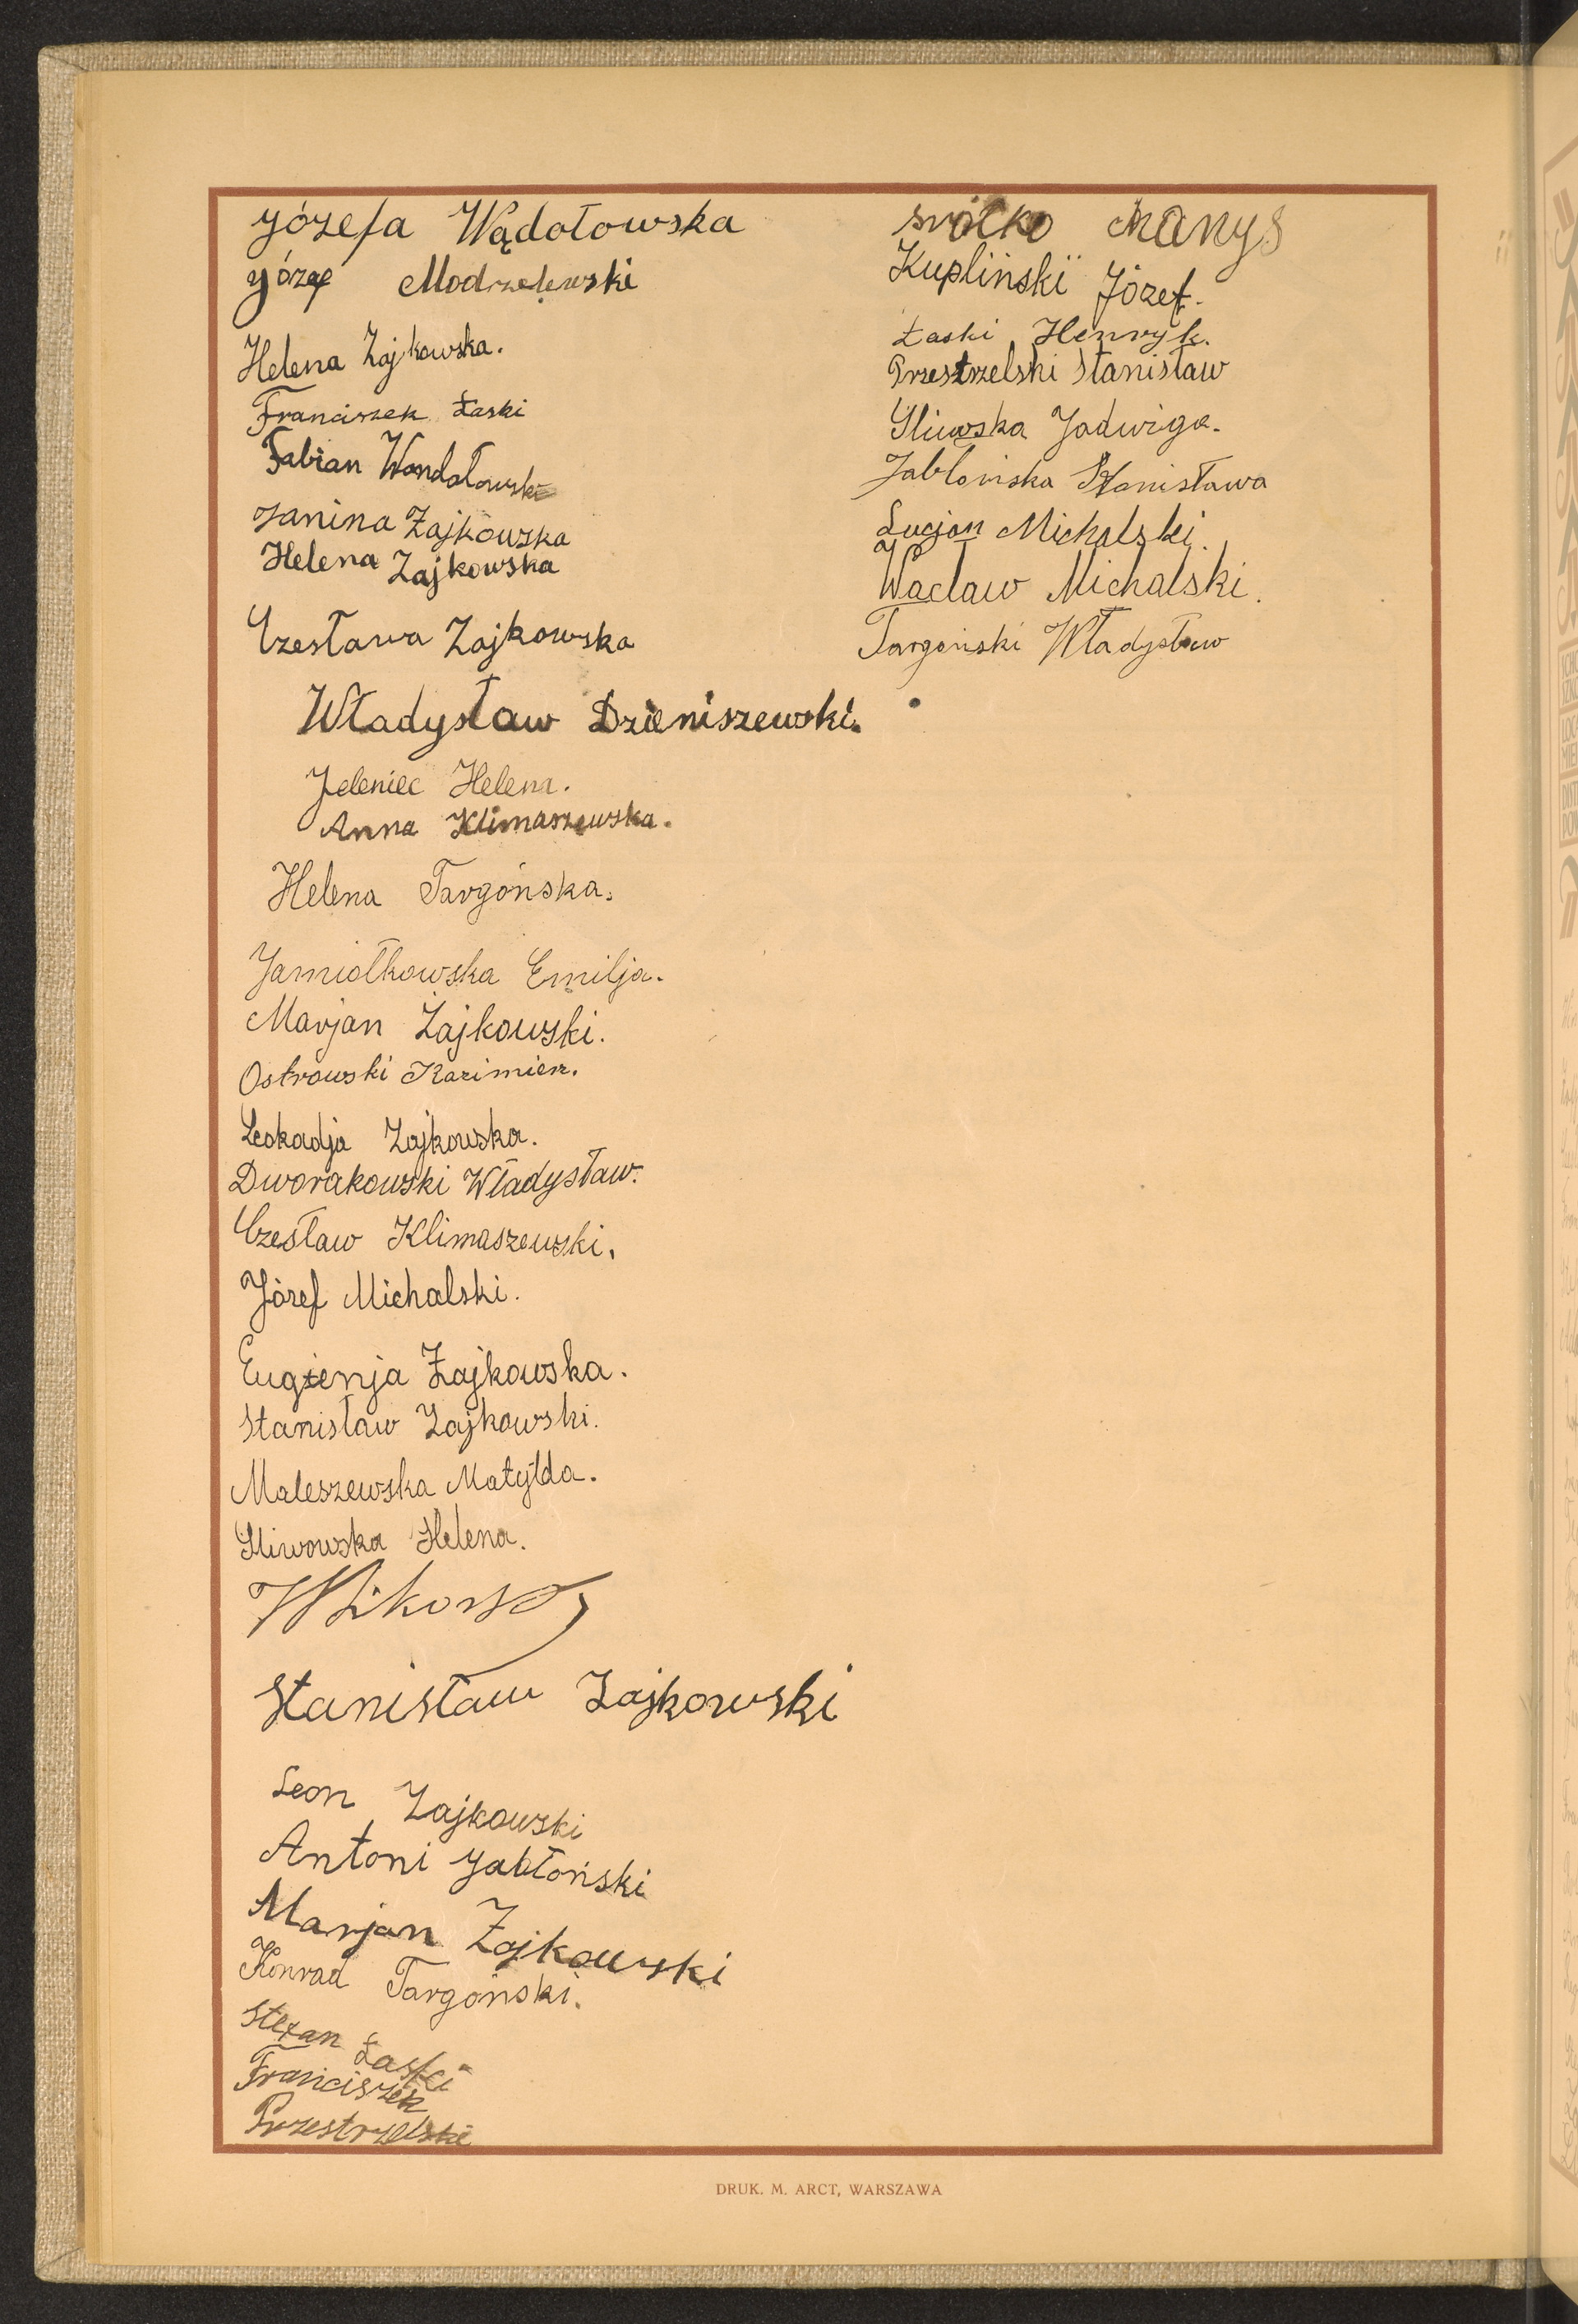 Józefa Wądołowska
Józef Modrzelewski
Helena Zajkowska.
Franciszek Łaski
Fabian Wondołowski
Janina Zajkowska
Helena Zajkowska
Czesława Zajkowska
Władysław Dzieniszewski.
Jeleniec Helena.
Anna Klimaszewska.
Helena Targońska.
Jamiołkowska Emilja.
Marjan Zajkowski.
Ostrowski Kazimierz.
Leokadja Zajkowska.
Dworakowski Władysław.
Czesław Klimaszewski.
Józef Michalski.
Eugienja Zajkowska.
Stanisław Zajkowski.
Maleszewska Matylda.
Śliwowska Helena.
Stanisław Zajkowski
Leon Zajkowski
Antoni Jabłoński
Marjan Zajkowski
Konrad Targoński.
Stefan Łaski
Franciszek
Przestrzelski
Kupliński Józef.
Łaski Henryk.
Przestrzelski Stanisław
Jadwiga.
Jabłońska Stanisława
Lucjan Michalski.
Wacław Michalski.
Targoński Władysław
DRUK. M. ARCT, WARSZAWA